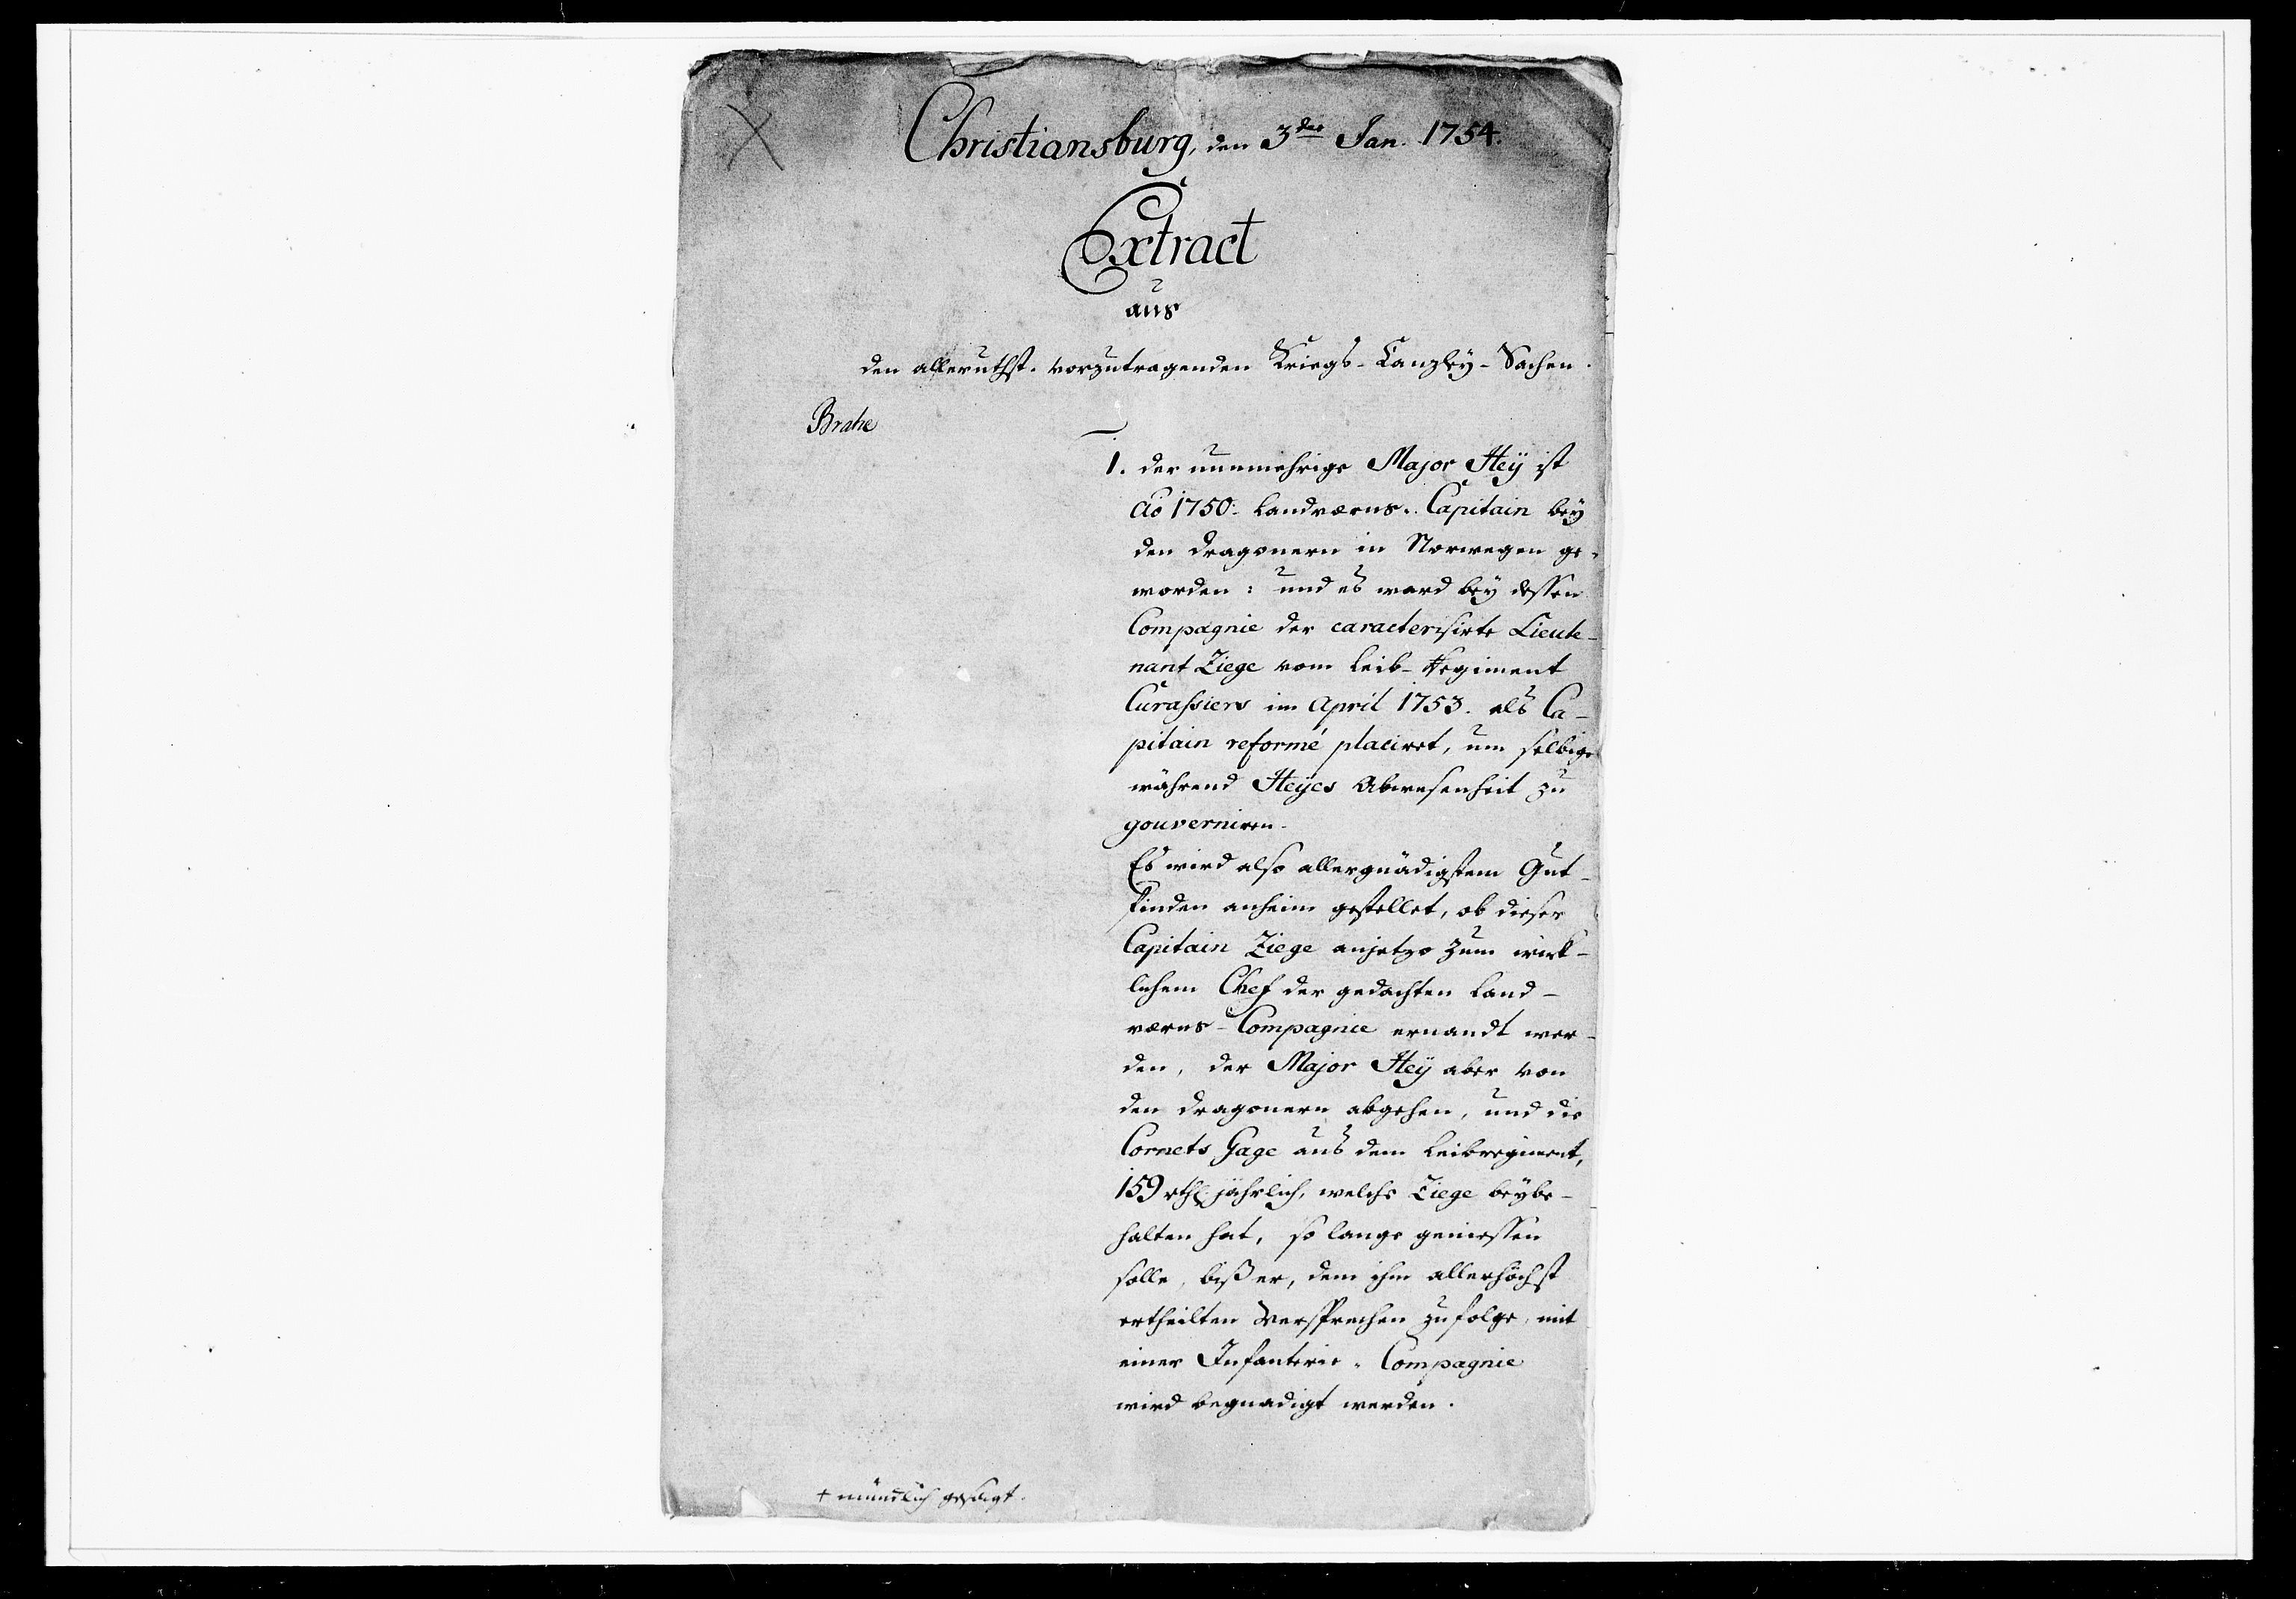 Christiansburg, den 3ten Jan. 1754.
Extract
aus
den alleruthst. vorzutragenden Kriegs-Canzley-Sachen.
Brahe
1. der nunmehrige Major Heÿ ist
Ao 1750. Landværns-Capitain bey
den Dragonern in Norwegen ge-
worden: und es ward bey dessen
Compagnie der caracterisirte Lieute-
nant Ziege vom Leib-Regiment
Curassiers im April 1753. als Ca-
pitain reformé placiret, um selbige
während Heÿes Abwesenheit zu
gouverniren.
Es wird also allergnädigstem Gut-
finden anheim gestellet, ob dieser
Capitain Ziege anjetzo zum wirk-
lichem Chef der gedachten Land-
værns-Compagnie ernandt wer-
den, der Major Heÿ aber von
den Dragonern abgehen, und die
Cornets Gage aus dem Leibregiment,
159 rthl jährlich, welche Ziege beybe-
halten hat, so lange geniessen
solle, biß er, dem ihm allerhöchst
ertheilten Versprechen zufolge, mit
einer Infanterie-Compagnie
wird begnadigt werden.
+ mündlich gesagt.